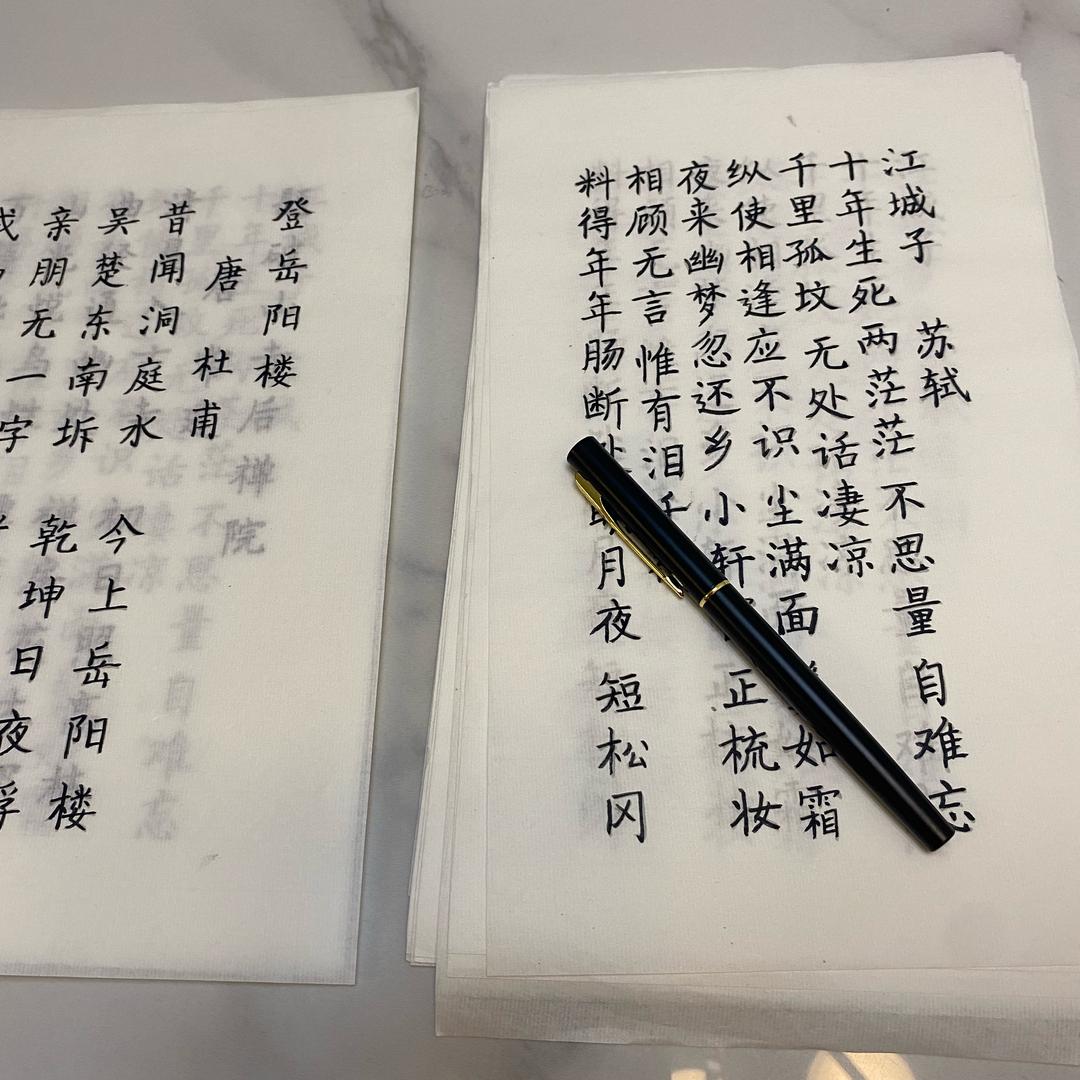 江城子 苏轼
十年生死两茫茫 不思量 自难忘
千里孤坟 无处话凄凉
纵使相逢应不识 尘满面 如霜
夜来幽梦忽还乡 小轩 正梳妆
相顾无言 惟有泪
料得年年肠断 月夜 短松冈
登岳阳楼
唐 杜甫
昔闻洞庭水 今上岳阳楼
吴楚东南坼 乾坤日夜浮
亲朋无一字